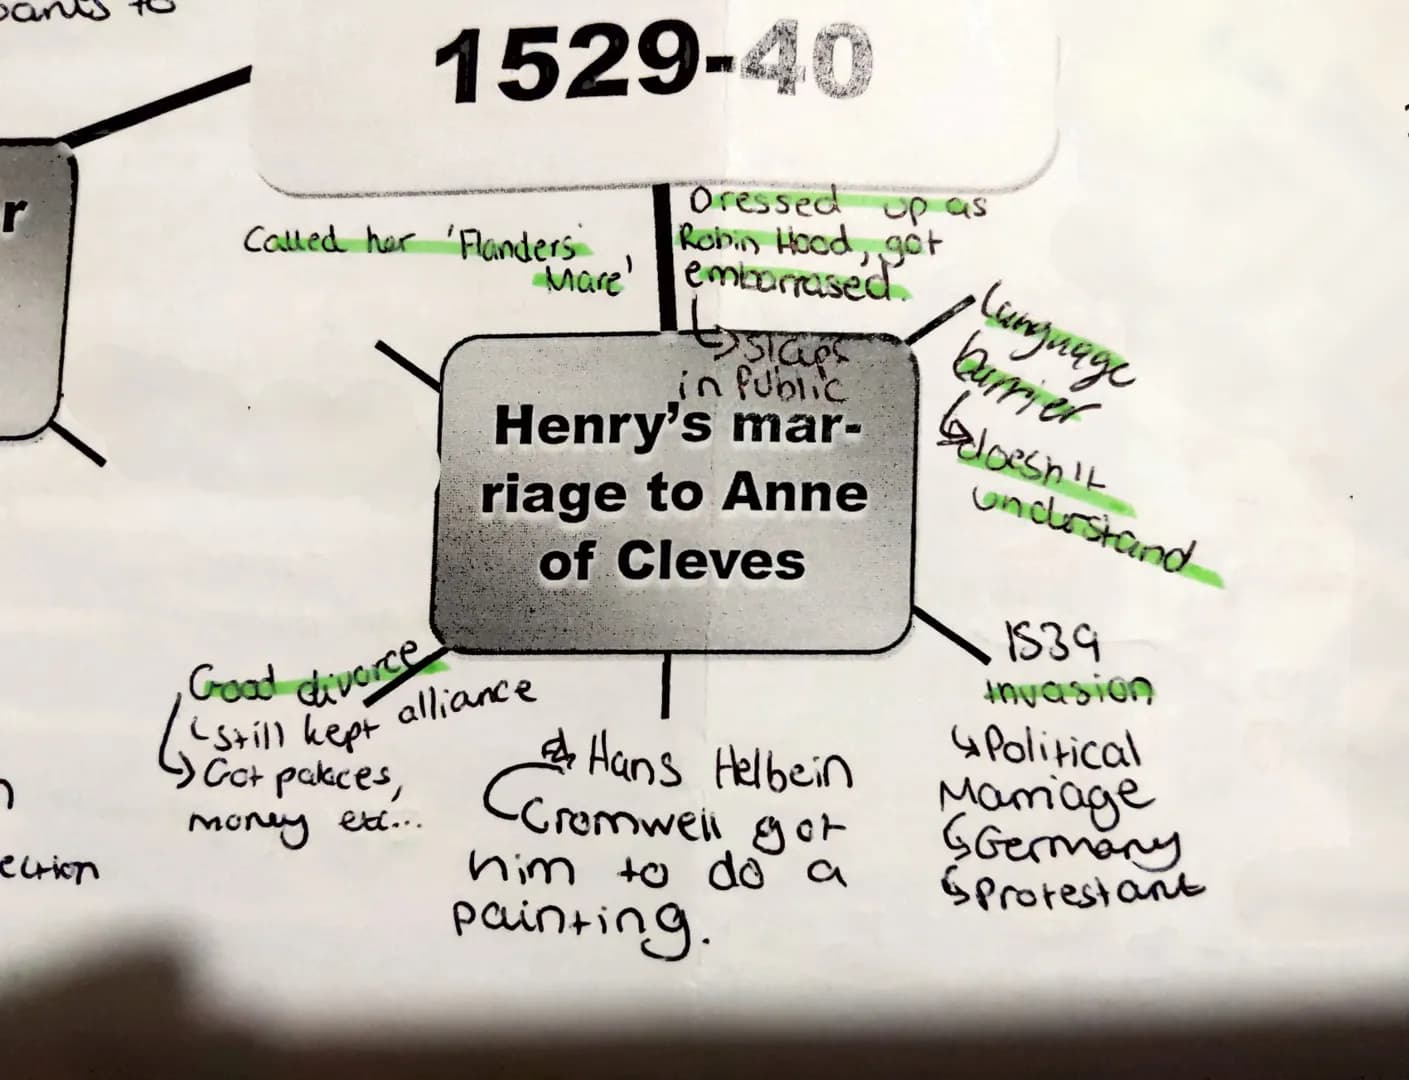 to
1529-40
r
Called her 'Flanders
Mare'
Dressed up as
Robin Hood, got
embarrased.
↳ slaps
in Public
Language
barrier
↳ doesn't
understand
Henry's mar-
riage to Anne
of Cleves
Good divorce
↳ still kept alliance
↳ Got palaces,
money etc...
Hans Helbein
Cromwell got
him to do a
painting.
1539
invasion
↳ Political
Marriage
↳ Germany
↳ Protestant